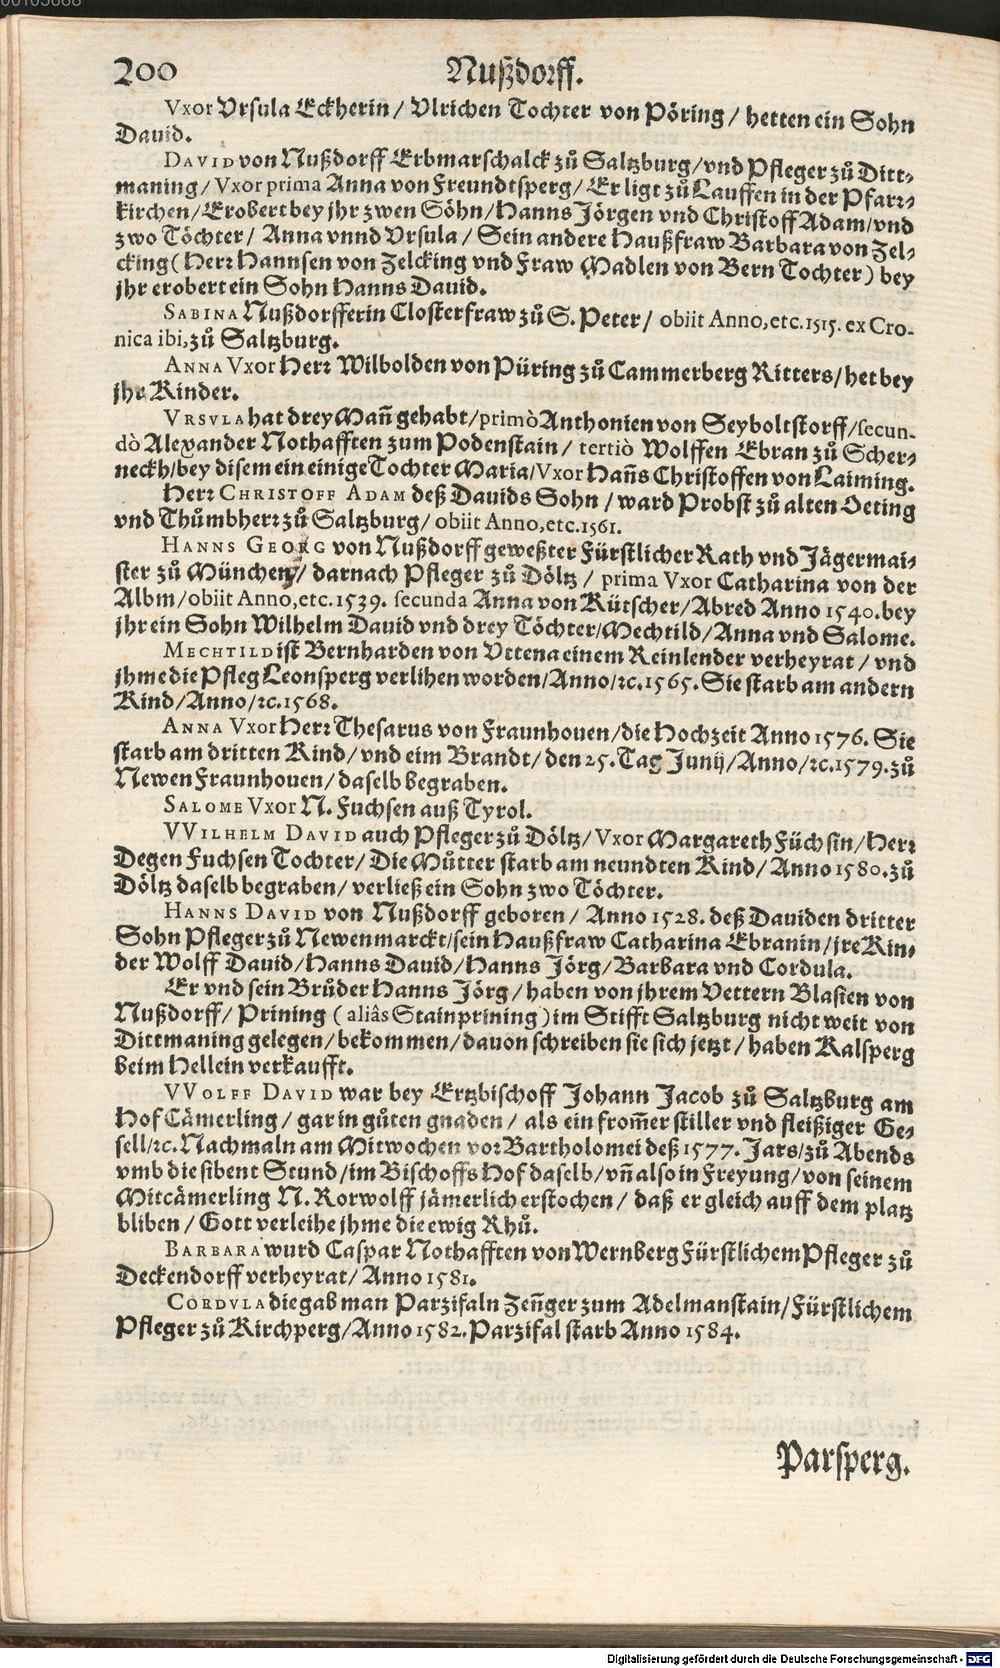 200 Nußdorff.
Vxor Vrsula Eckherin / Vlrichen Tochter von Pöring / hetten ein Sohn
Dauid.
DAVID von Nußdorff Erbmarschalck zů Saltzburg / vnd Pfleger zů Ditt⸗
maning / Vxor prima Anna von Freundtsperg / Er ligt zů Lauffen in der Pfarr⸗
kirchen / Erobert bey jhr zwen Söhn / Hanns Jörgen vnd Christoff Adam / vnd
zwo Töchter / Anna vnnd Vrsula / Sein andere Haußfraw Barbara von Zel⸗
cking (Herr Hannsen von Zelcking vnd Fraw Madlen von Bern Tochter) bey
jhr erobert ein Sohn Hanns Dauid.
SABINA Nußdorfferin Closterfraw zů S. Peter / obiit Anno, etc. 1515. ex Cro-
nica ibi, zů Saltzburg.
ANNA Vxor Herr Wilbolden von Püring zů Cammerberg Ritters / het bey
jhr Kinder.
VRSVLA hat drey Mañ gehabt / primò Anthonien von Seyboltstorff / secun-
dò Alexander Nothafften zum Podenstain / tertiò Wolffen Ebran zů Scher⸗
neckh / bey disem ein einige Tochter Maria / Vxor Hañs Christoffen von Laiming.
Herr CHRISTOFF ADAM deß Dauids Sohn / ward Probst zů alten Oeting
vnd Thůmbherr zů Saltzburg / obiit Anno, etc. 1561.
HANNS GEORG von Nußdorff geweßter Fürstlicher Rath vnd Jägermai⸗
ster zů München / darnach Pfleger zů Döltz / prima Vxor Catharina von der
Albm / obiit Anno, etc. 1539. secunda Anna von Rütscher / Abred Anno 1540. bey
jhr ein Sohn Wilhelm Dauid vnd drey Töchter / Mechtild / Anna vnd Salome.
MECHTILD ist Bernharden von Vttena einem Reinlender verheyrat / vnd
jhme die Pfleg Leonsperg verlihen worden / Anno / ꝛc. 1565. Sie starb am andern
Kind / Anno / ꝛc. 1568.
ANNA Vxor Herr Thesarus von Fraunhouen / die Hochzeit Anno 1576. Sie
starb am dritten Kind / vnd eim Brandt / den 25. Tag Junij / Anno / ꝛc. 1579. zů
Newen Fraunhouen / daselb begraben.
SALOME Vxor N. Fuchsen auß Tyrol.
VVILHELM DAVID auch Pfleger zů Döltz / Vxor Margareth Füchsin / Herr
Degen Fuchsen Tochter / Die Můtter starb am neundten Kind / Anno 1580. zů
Döltz daselb begraben / verließ ein Sohn zwo Töchter.
HANNS DAVID von Nußdorff geboren / Anno 1528. deß Dauiden dritter
Sohn Pfleger zů Newenmarckt / sein Haußfraw Catharina Ebranin / jre Kin⸗
der Wolff Dauid / Hanns Dauid / Hanns Jörg / Barbara vnd Cordula.
Er vnd sein Brůder Hanns Jörg / haben von jhrem Vettern Blasien von
Nußdorff / Prining (aliâs Stainprining) im Stifft Saltzburg nicht weit von
Dittmaning gelegen / bekommen / dauon schreiben sie sich jetzt / haben Kalsperg
beim Hellein verkaufft.
VVOLFF DAVID war bey Ertzbischoff Johann Jacob zů Saltzburg am
Hof Cämerling / gar in gůten gnaden / als ein from̃er stiller vnd fleißiger Ge⸗
sell / ꝛc. Nachmaln am Mitwochen vor Bartholomei deß 1577. Jars / zů Abends
vmb die sibent Stund / im Bischoffs Hof daselb / vñ also in Freyung / von seinem
Mitcämerling N. Rorwolff jämerlich erstochen / daß er gleich auff dem platz
bliben / Gott verleihe jhme die ewig Rhů.
BARBARA wurd Caspar Nothafften von Wernberg Fürstlichem Pfleger zů
Deckendorff verheyrat / Anno 1581.
CORDVLA die gab man Parzifaln Zeñger zum Adelmanstain / Fürstlichem
Pfleger zů Kirchperg / Anno 1582. Parzifal starb Anno 1584.
Parsperg.
Digitalisierung gefördert durch die Deutsche Forschungsgemeinschaft - DFG